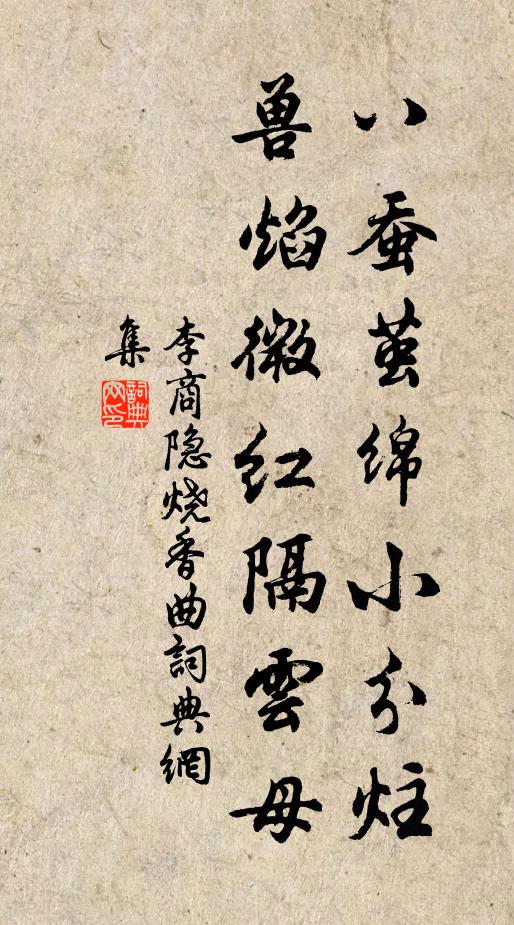 八蚕茧绵小分炷
兽焰微红隔雲母
李商隐烧香曲詞典網
集
詞典
网印